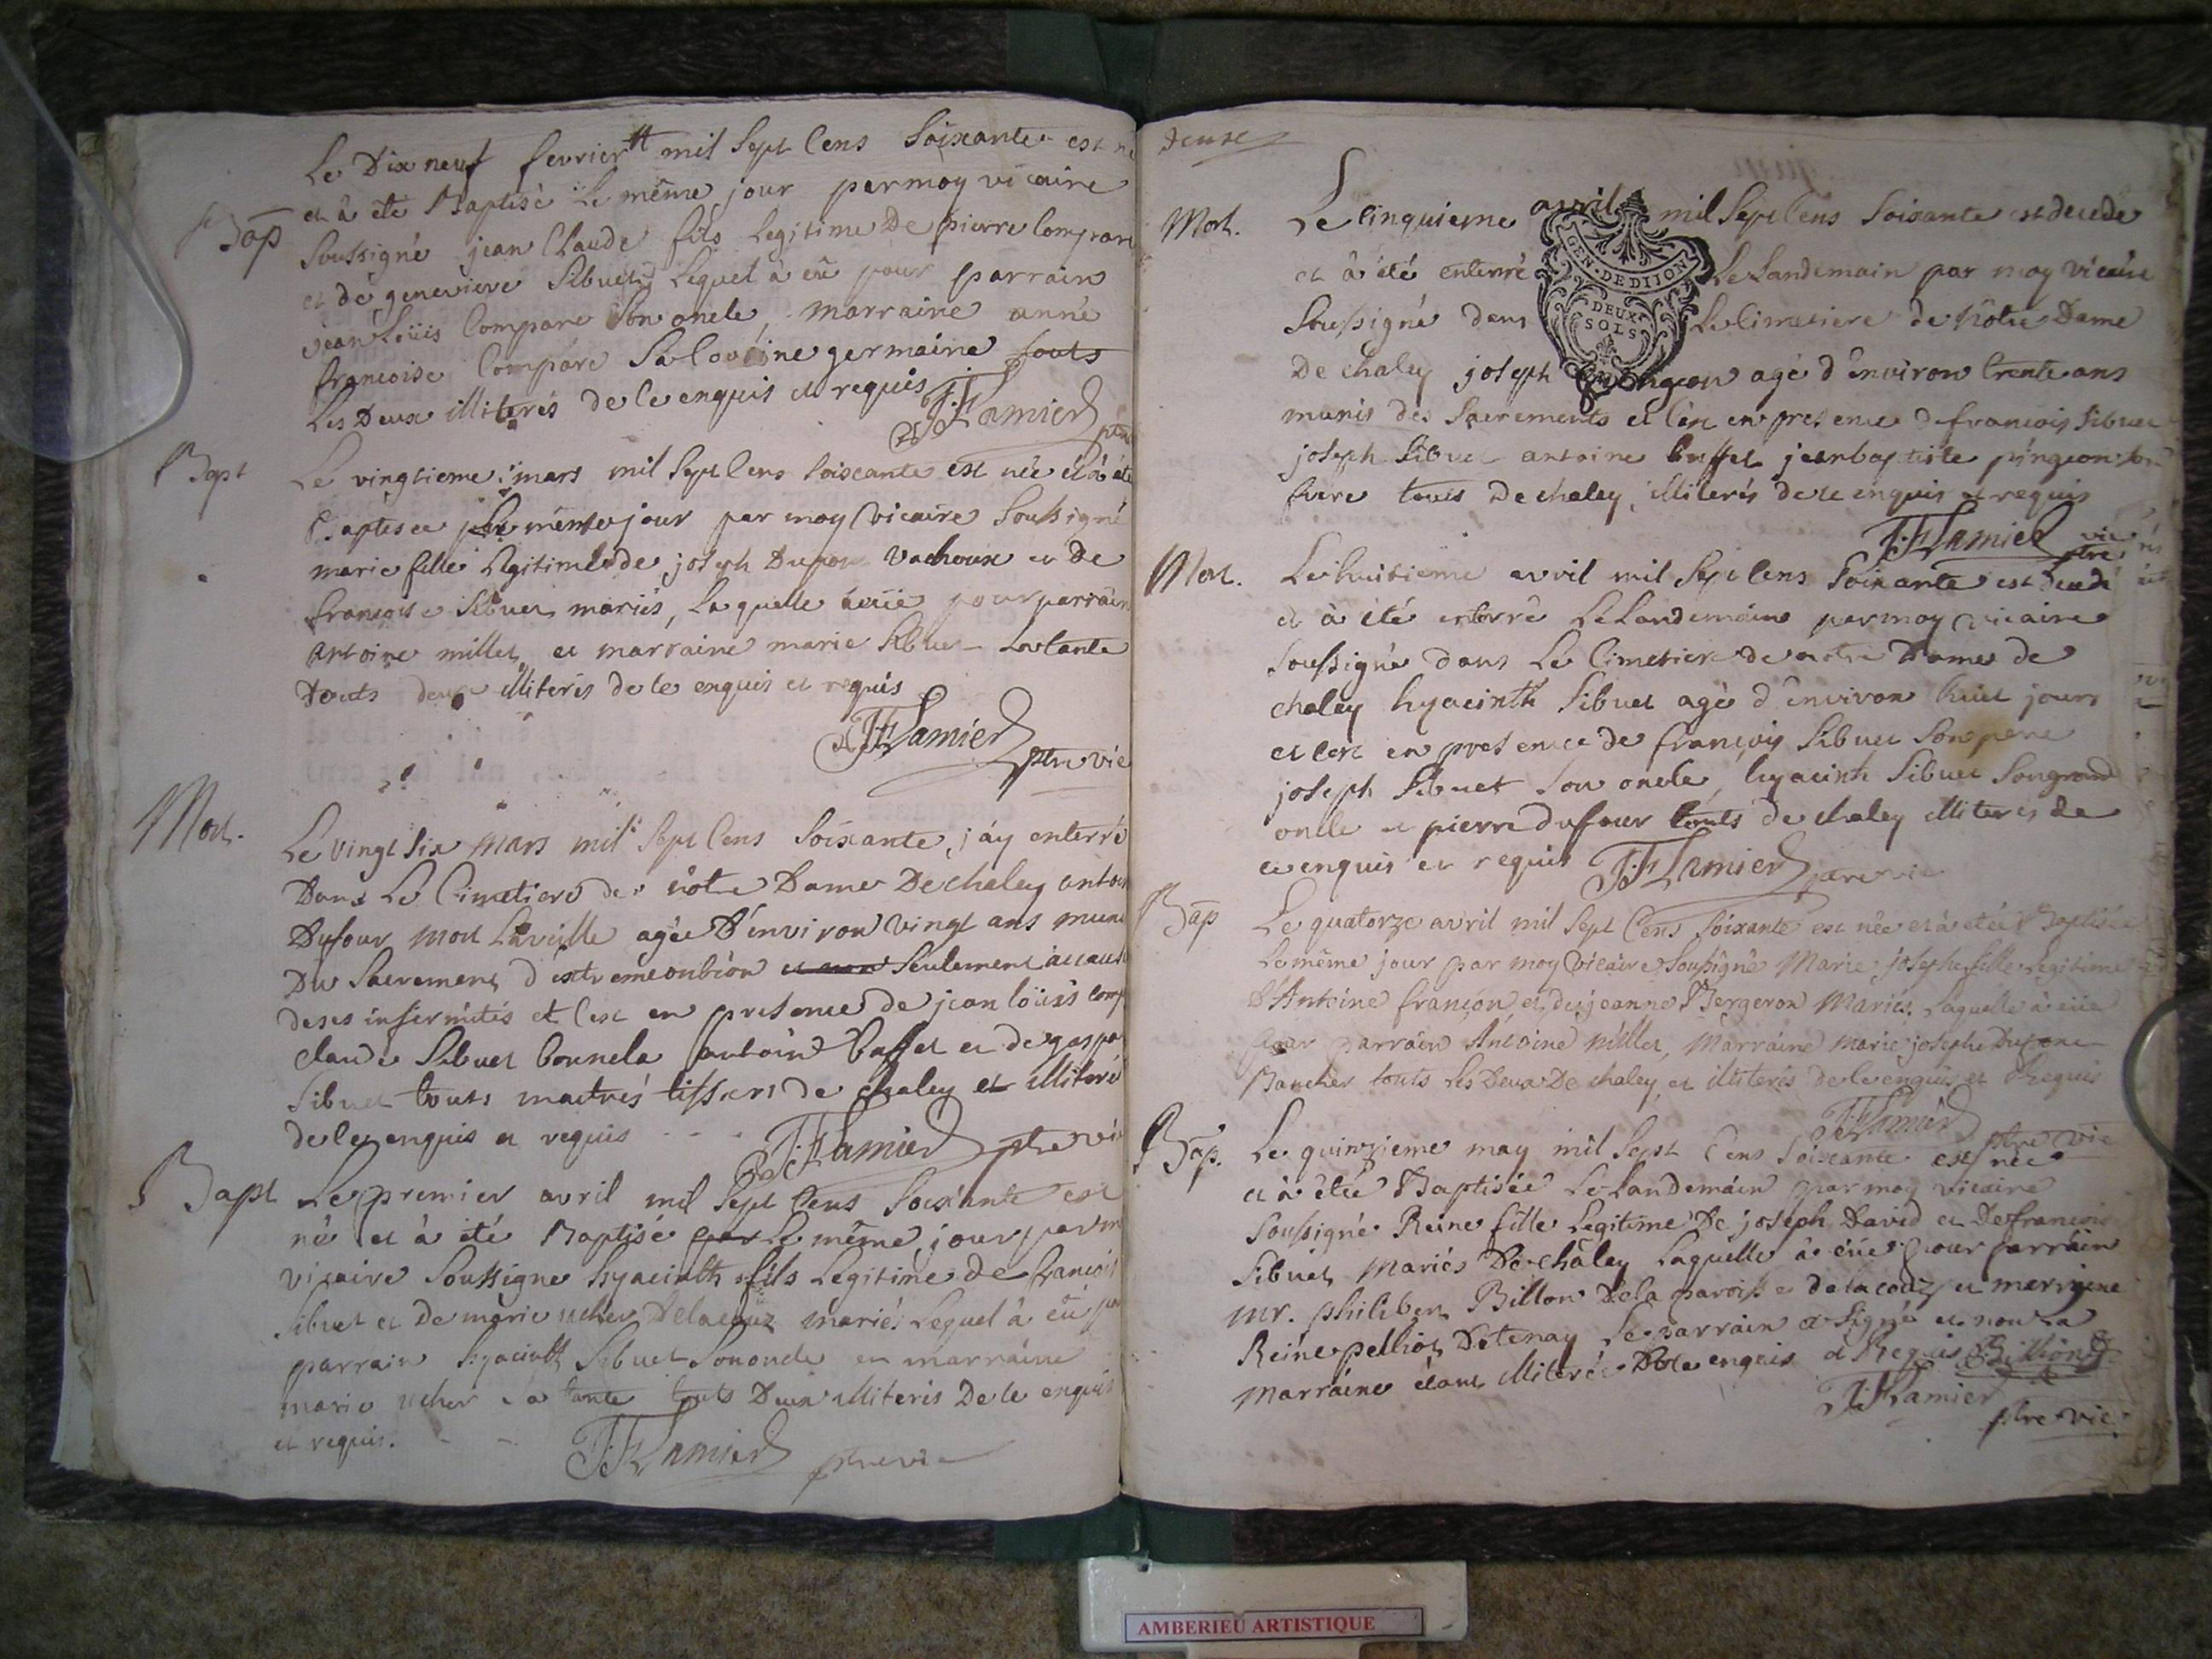 Le Dix neuf fevrier mil sept Cens soixante est
et à été Baptisé Le même jour par moy vicaire
Bap
soussigné jean Claude fils Legitime De pierre Compare
et de genevieve Sibuet, Lequel à eû pour parrain
jean Loüis Compare son oncle, marraine anne
francoise Compare sa Cousine germaine touts
Les Deux illiterés de ce enquis et requis
J:F Lamier ptre
Bapt
Le vingtieme mars mil sept Cens soixante est née et à été
Baptisée Le même jour par moy vicaire soussigné
marie fille Legitime de joseph Dupon Vachoux et De
francoise Sibuet mariés, Laquelle à eüe pour parrain
antoine millet et marraine marie Sibuet sa tante
touts deux illiterés de ce enquis et requis
J:F Lamier
ptre vic
Mort.
Le vingt six mars mil sept Cens soixante, j'ay enterré
Dans Le Cimetiere de notre Dame De chaley
Dufour mort Laveille agée d'environ vingt ans
Du sacrement d'extremeonction et non seulement
de ses infermités et c'est en presence de jean loüis
claude Sibuet bonnela antoine buffet et de
Sibuet touts maitres tissiers de chaley et illiteré
de ce enquis et requis - - -
J:F Lamier ptre vic
Bapt
Le premier avril mil sept Cens soixante est
né et à été Baptisé par Le même jour par
vicaire soussigné hyacinth fils Legitime de francois
Sibuet et De marie ucher Delacouz mariés Lequel à eû
parrain hyacinth Sibuet son oncle et marraine
marie ucher sa tante touts Deux illiterés De ce enquis
et requis. - -
J:F Lamier ptre vic
Deuse
Mort.
Le Cinquieme avril mil sept Cens soixante est decede
et à été enterré Le Landemain par moy vicaire
soussigné dans Le Cimetiere de Nôtre Dame
GEN. DE DIJON
DEUX
SOLS
De chaley joseph pingeon agé d'environ trente ans
munis des sacrements et c'est en presence de francois Sibuet
joseph Sibuet antoine buffet jean baptiste pingeon son
frere touts De chaley, illiterés de ce enquis et requis
J:F Lamier vic
ptre
Mort.
Le huitieme avril mil sept Cens soixante est decedé
et à été enterré Le Landemain par moy vicaire
soussigné dans Le Cimetiere de notre Dame de
chaley hyacinth Sibuet agé d'environ huit jours
et c'est en presence de françois Sibuet son pere
joseph Sibuet son oncle, hyacinth Sibuet son grand
oncle et pierre dufour touts de chaley illiterés de
ce enquis et requis J:F Lamier ptre vic
Bap
Le quatorze avril mil sept Cens soixante est née et à étée Baptisée
Le même jour par moy vicaire soussigné Marie josephe fille Legitime
D'Antoine françon et de jeanne Bergeron Mariés. Laquelle à eüe
pour parrain Antoine millet, Marraine marie josephe Dupon
Bancher touts Les Deux De chaley, et illiterés de ce enquis et Requis
J:F Lamier
ptre vic
Bap.
Le quinzieme may mil sept Cens soixante est née
et à étée Baptisée Le Landemain par moy vicaire
soussigné Reine fille Legitime De joseph David et De francoise
Sibuet Mariés De chaley Laquelle à eüe pour parrain
mr. philibert Billon De la paroisse de la couz et marraine
Reine pelliot De tenay Le parrain a signé et non La
Marraine étant illiterée De ce enquis et Requis Billion
J:F Lamier
ptre vic.
AMBERIEU ARTISTIQUE